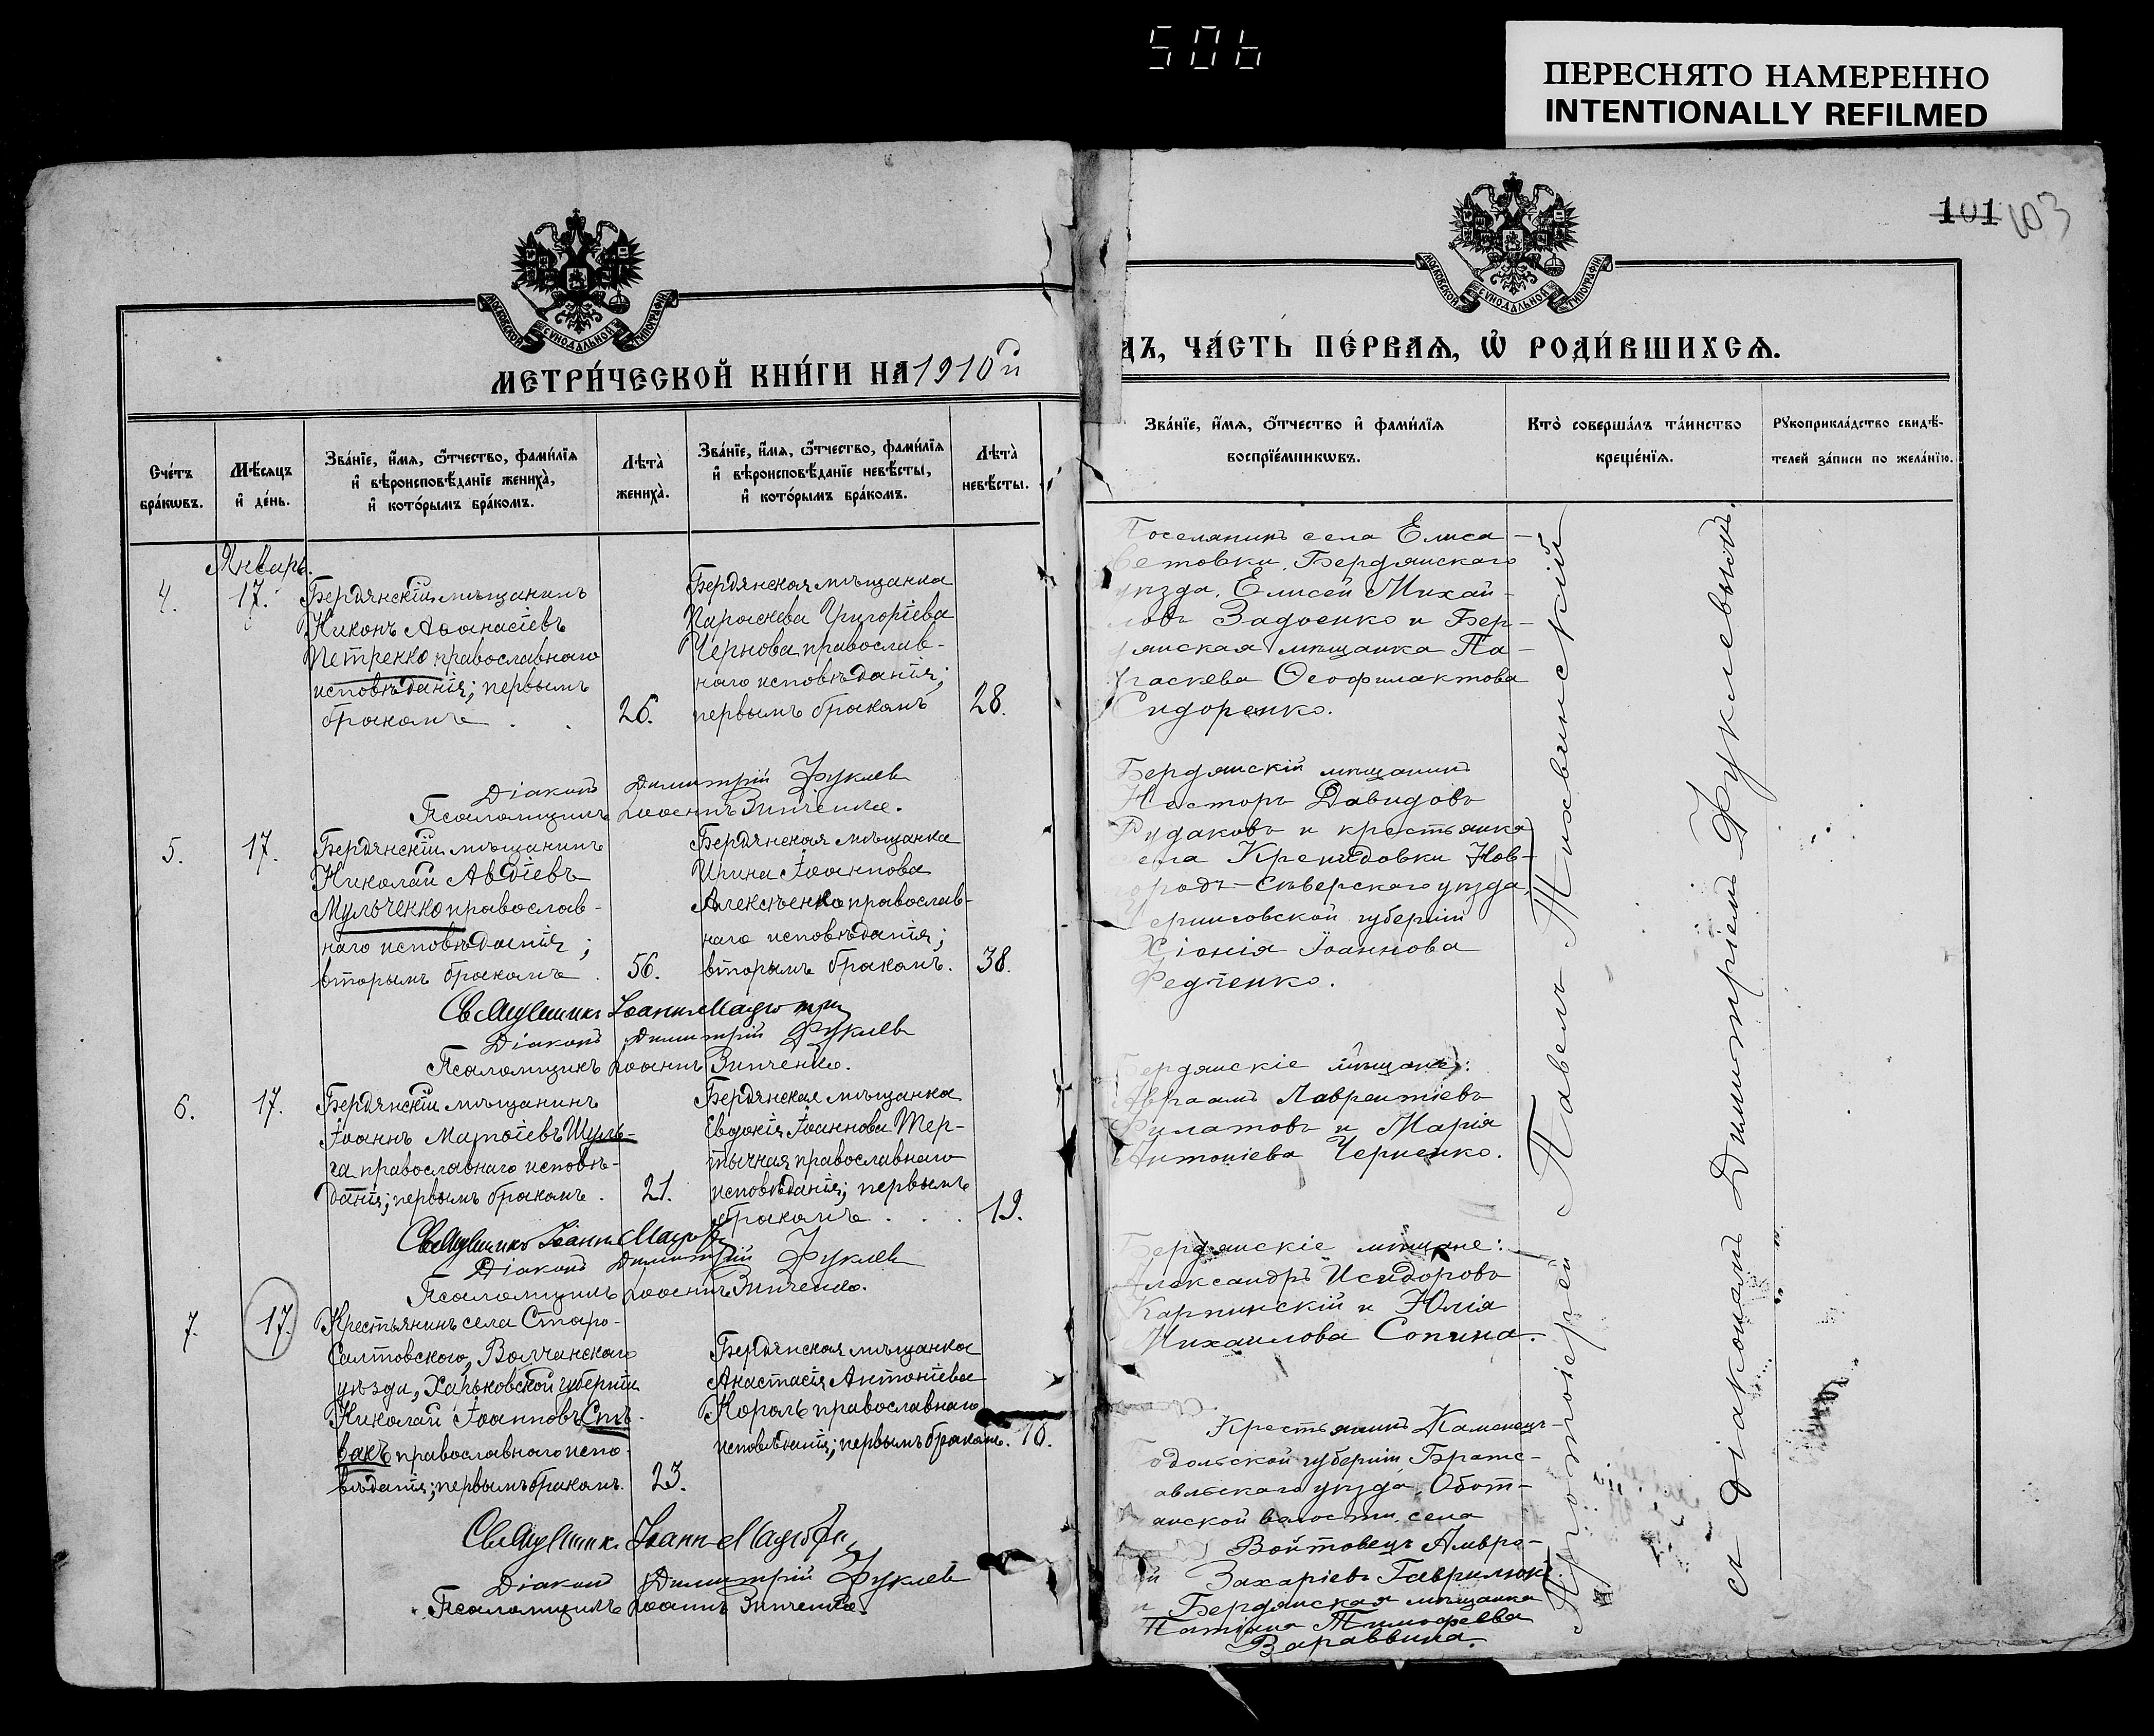 506
ПЕРЕСНЯТО НАМЕРЕННО
INTENTIONALLY REFILMED
МОСКОВСКОЙ СѴНОДАЛЬНОЙ ТИПОГРАФІИ
МЕТРИ́ЧЕСКОЙ КНИ́ГИ НА 1910й
Сче́тъ бра́кѡвъ.
Мѣ́сяцъ и҆ де́нь.
Зва́нїе, и҆́мѧ, ѻ҆́тчество, фами́лїѧ и҆ вѣроисповѣ́данїе жениха̀, и҆ кото́рымъ бра́комъ.
Лѣта̀ жениха̀.
Зва́нїе, и҆́мѧ, ѻ҆́тчество, фами́лїѧ и҆ вѣроисповѣ́данїе невѣ́сты, и҆ кото́рымъ бра́комъ.
Лѣта̀ невѣ́сты.
Январь.
4. 17.
Бердянскій мѣщанинъ
Никонъ Аѳанасіевъ
Петренко православнаго
исповѣданія; первымъ
бракомъ 26.
Бердянская мѣщанка
Параскева Григоріева
Чернова православ-
наго исповѣданія;
первымъ бракомъ 28.
Діаконъ Димитрій Фуклев
Псаломщикъ Іоаннъ Зинченко.
5. 17.
Бердянскій мѣщанинъ
Николай Авдіевъ
Мульченко православ-
наго исповѣданія;
вторымъ бракомъ. 56.
Бердянская мѣщанка
Ирина Іоаннова
Алексѣенко православ-
наго исповѣданія;
вторымъ бракомъ. 38.
Священникъ Іоаннъ
Діаконъ Димитрій Фуклев
Псаломщикъ Іоаннъ Зинченко.
6. 17.
Бердянскій мѣщанинъ
Іоаннъ Матѳіевъ Шуль-
га православнаго исповѣ-
данія; первымъ бракомъ. 21.
Бердянская мѣщанка
Евдокія Іоаннова Тер-
тычная православнаго
исповѣданія; первымъ
бракомъ 19.
Священникъ Іоаннъ
Діаконъ Димитрій Фуклев
Псаломщикъ Іоаннъ Зинченко.
7. 17.
Крестьянинъ села Старо-
Салтовского, Волчанскаго
уѣзда, Харьковской губерніи
Николай Іоанновъ Спѣ-
вакъ православнаго испо-
вѣданія; первымъ бракомъ. 23.
Бердянская мѣщанка
Анастасія Антоніева
Король православнаго
исповѣданія; первымъ бракомъ.
Священникъ Іоаннъ
Діаконъ Димитрій Фуклев
Псаломщикъ Іоаннъ Зинченко.
101 103
МОСКОВСКОЙ СѴНОДАЛЬНОЙ ТИПОГРАФІИ
ДЪ, ЧА́СТЬ ПЕ́РВАѦ, Ѽ РОДИ́ВШИХСѦ.
Зва́нїе, и҆́мѧ, ѻ҆́тчество и҆ фами́лїѧ
воспрїе́мникѡвъ.
Кто̀ соверша́лъ та́инство
креще́нїѧ.
Рꙋкоприкла́дство свидѣ́-
телей за́писи по жела́нїю.
Поселянинъ села Елиса-
ветовки, Бердянскаго
уѣзда, Елисей Михай-
ловъ Задоенко и Бер-
дянская мѣщанка Па-
раскева Ѳеофилактова
Сидоренко.
Бердянскій мѣщанинъ
Несторъ Давидовъ
Рудаковъ и крестьянка
села Крепидовки Нов-
городъ-Сѣверскаго уѣзда,
Черниговской губерніи
Хіонія Іоаннова
Федченко.
Бердянскіе мѣщане:
Авраамъ Лаврентіевъ
Филатовъ и Марія
Антоніева Черненко.
Бердянскіе мѣщане:
Александръ Исидоровъ
Карпинскій и Юлія
Михаилова Сопина.
Крестьянинъ Каменецъ-
Подольской губерніи, Брацс-
лавльскаго уѣзда, Обот-
анской волости, села
Войтовецъ Амвро-
сій Захаріевъ Гаврилюкъ
и Бердянская мѣщанка
Татіана Тимофеева
Вараввина.
Протоіерей Павелъ Тихвинскій
съ діакономъ Димитріемъ Фуклевымъ.